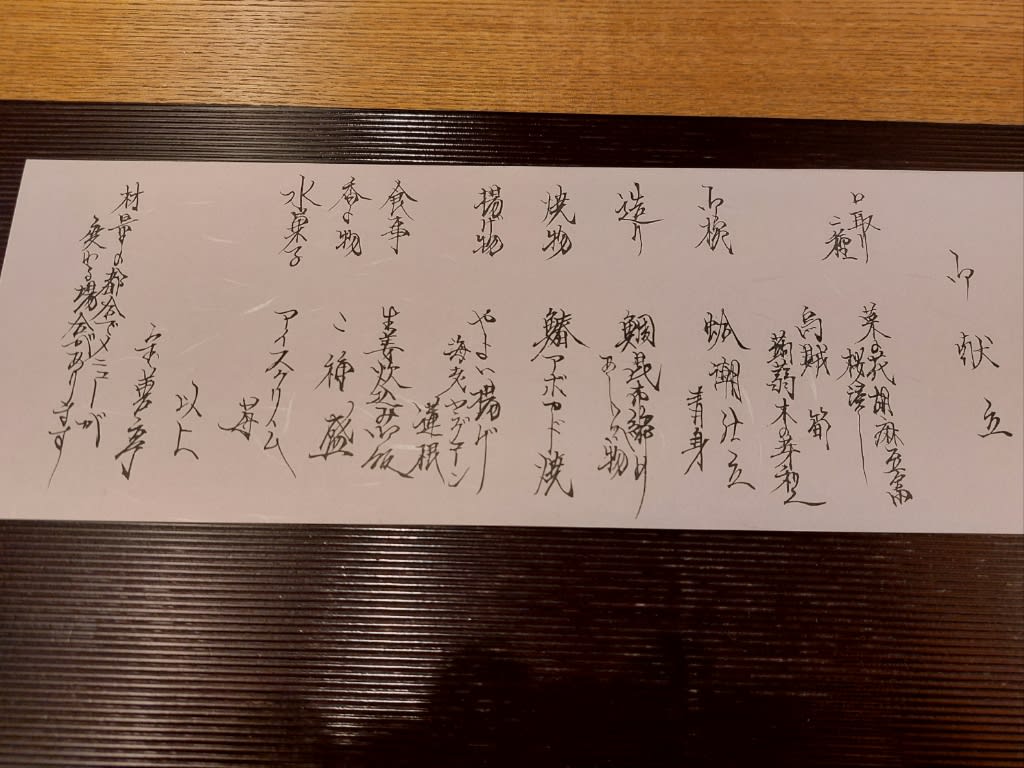 御献立
口取り
二種
菜の花胡麻豆腐
烏賊 筍
蒟蒻木の芽和え
御椀
蛤潮仕立
青身
造り
鯛昆布
あしらへ物
焼物
鰆アボカド焼
揚げ物
やよい揚げ
海老 ヤングコーン
蓮根
食事
生姜炊込み御飯
香の物
二種盛
水菓子
アイスクリーム
苺
以上
材量の都合でメニューが
変わる場合があります